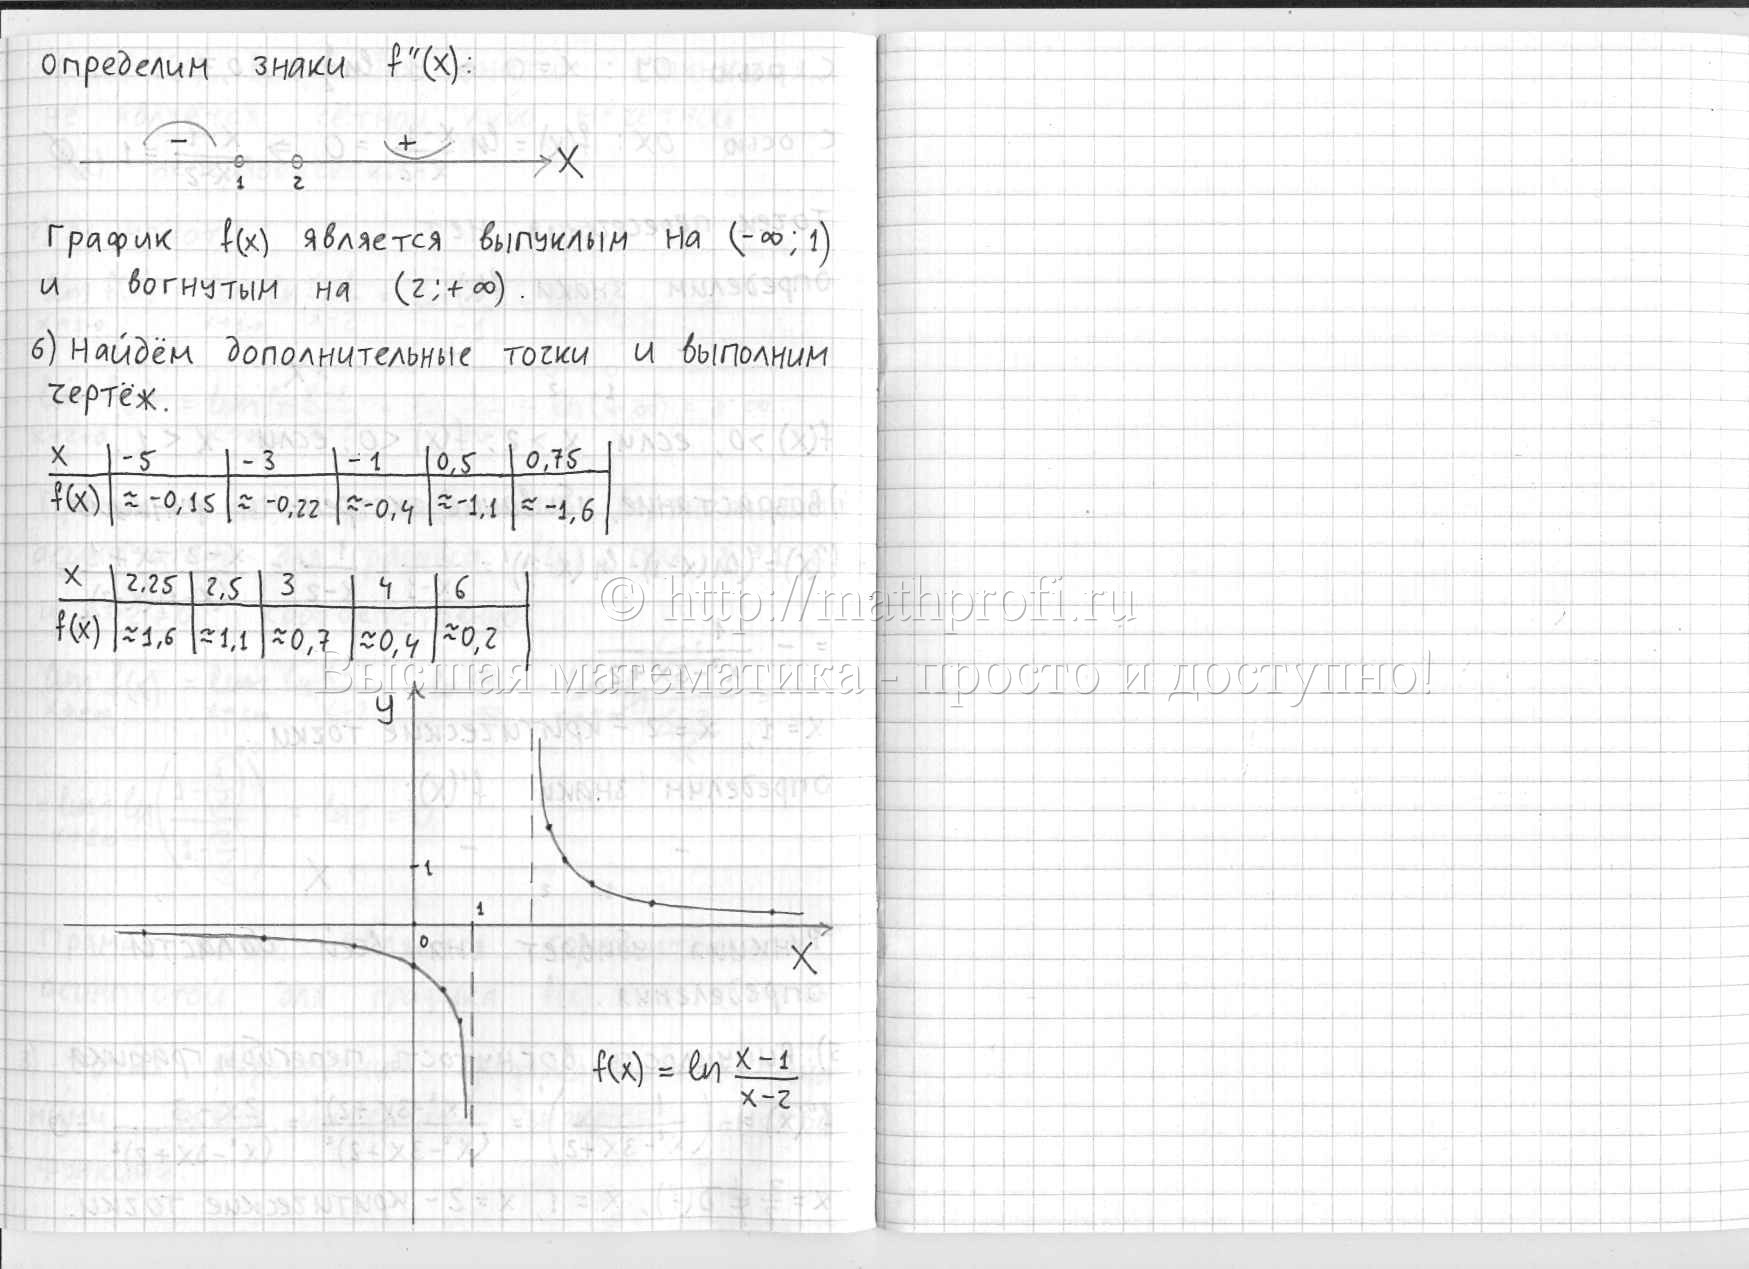 определим знаки f''(x):
- +
1 2 X
График f(x) является выпуклым на (-∞; 1)
и вогнутым на (2; +∞).
6) Найдём дополнительные точки и выполним
чертёж.
X | -5 | -3 | -1 | 0,5 | 0,75
f(x) | ≈ -0,15 | ≈ -0,22 | ≈ -0,4 | ≈ -1,1 | ≈ -1,6
X | 2,25 | 2,5 | 3 | 4 | 6
f(x) | ≈1,6 | ≈1,1 | ≈0,7 | ≈0,4 | ≈0,2
© http://mathprofi.ru
Высшая математика - просто и доступно!
y
1
1
0
X
f(x) = ln (x-1)/(x-2)